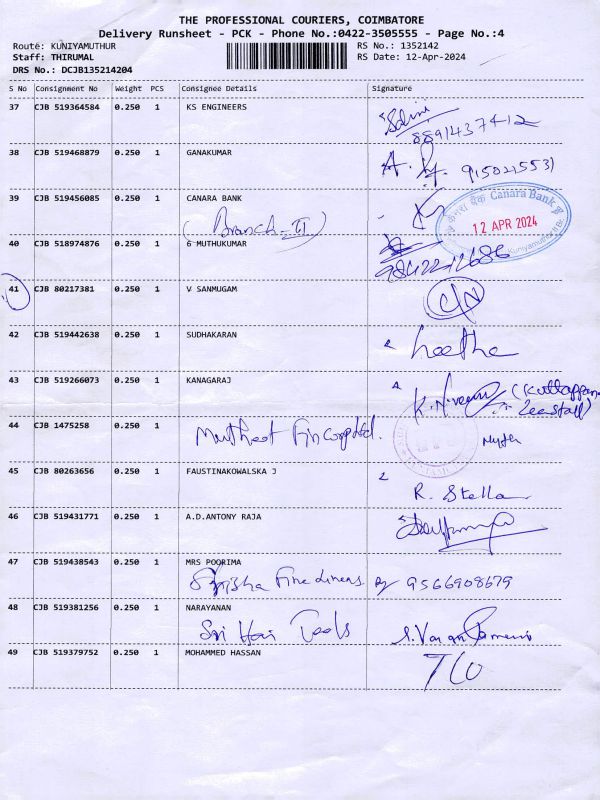 THE PROFESSIONAL COURIERS, COIMBATORE
Delivery Runsheet - PCK - Phone No.:0422-3505555 - Page No.:4
Route: KUNIYAMUTHUR RS No.: 1352142
Staff: THIRUMAL RS Date: 12-Apr-2024
DRS No.: DCJB135214204
S No Consignment No Weight PCS Consignee Details Signature
37 CJB 519364584 0.250 1 KS ENGINEERS
8891437412
38 CJB 519468879 0.250 1 GANAKUMAR
39 CJB 519456085 0.250 1 CANARA BANK
Canara Bank
12 APR 2024
(Branch-II)
40 CJB 518974876 0.250 1 G MUTHUKUMAR
41 CJB 80217381 0.250 1 V SANMUGAM
42 CJB 519442638 0.250 1 SUDHAKARAN
43 CJB 519266073 0.250 1 KANAGARAJ
44 CJB 1475258 0.250 1 Muthoot Fincorp Ltd.
45 CJB 80263656 0.250 1 FAUSTINAKOWALSKA J
R. Stella
46 CJB 519431771 0.250 1 A.D.ANTONY RAJA
47 CJB 519438543 0.250 1 MRS POORIMA
9566908679
48 CJB 519381256 0.250 1 NARAYANAN
Sri Hari Tools
49 CJB 519379752 0.250 1 MOHAMMED HASSAN